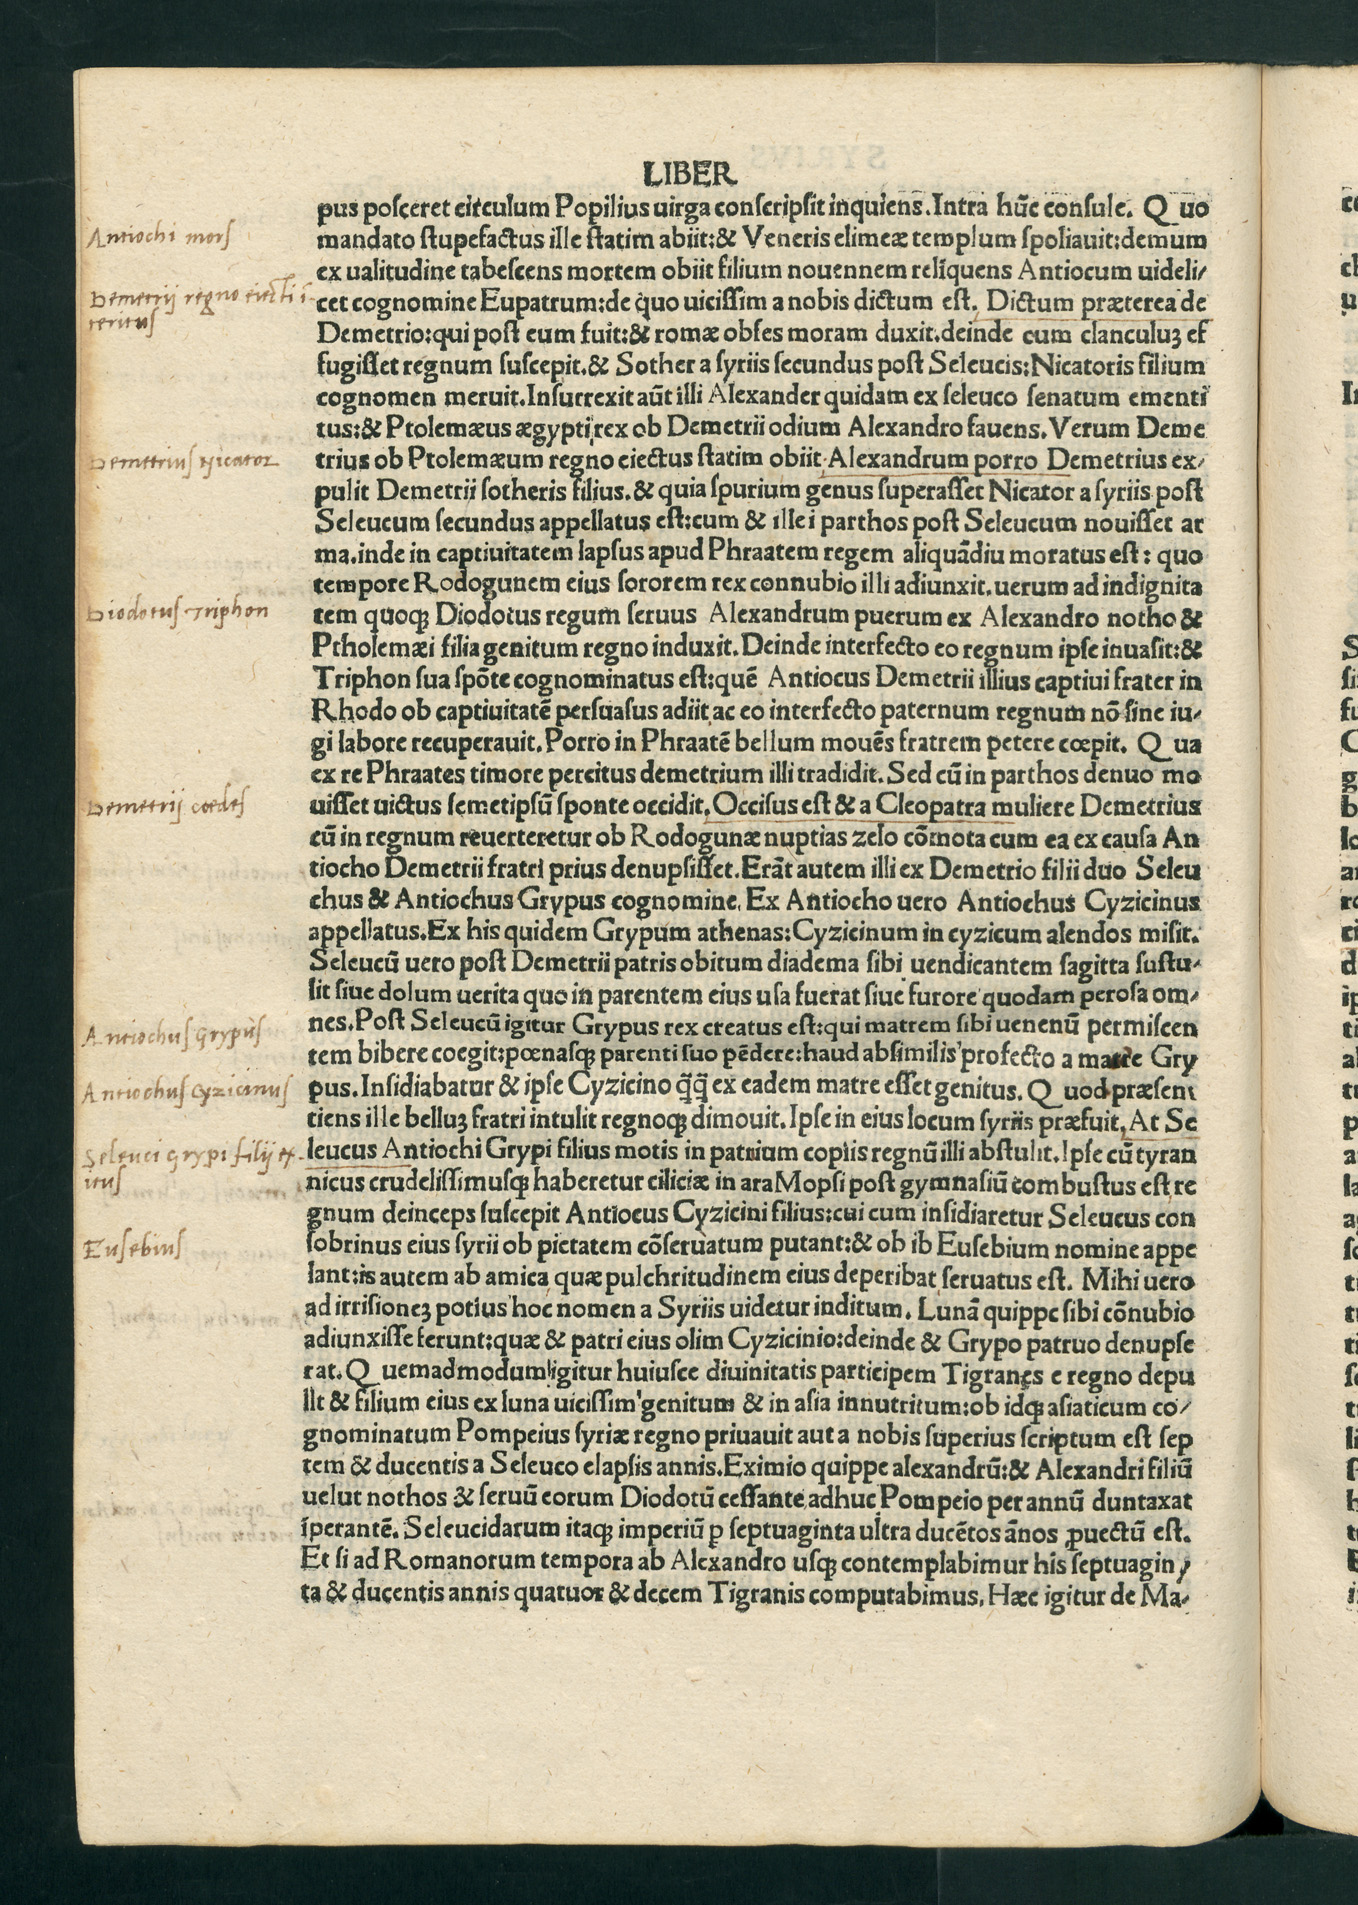 LIBER
pus posceret circulum Popilius uirga conscripsit inquiens. Intra hũc consule. Quo
Antiochi mors
mandato stupefactus ille statim abiit: & Veneris elimeæ templum spoliauit: demum
ex ualitudine tabescens mortem obiit filium nouennem relĩquens Antiocum uideli/
Demetrij regno eiecti ĩ-
teritus
cet cognomine Eupatrum: de quo uicissim a nobis dictum est. Dictum præterea de
Demetrio: qui post eum fuit: & romæ obses moram duxit. deinde cum clanculuꝫ ef
fugisset regnum suscepit. & Sother a syriis secundus post Seleucis: Nicatoris filium
cognomen meruit. Insurrexit aũt illi Alexander quidam ex seleuco senatum ementi
tus: & Ptolemæus ægypti rex ob Demetrii odium Alexandro fauens. Verum Deme
Demetrius Nicator
trius ob Ptolemæum regno eiectus statim obiit. Alexandrum porro Demetrius ex/
pulit Demetrii sotheris filius. & quia spurium genus superasset Nicator a syriis post
Seleucum secundus appellatus est: cum & ille i parthos post Seleucum nouisset ar
ma. inde in captiuitatem lapsus apud Phraatem regem aliquãdiu moratus est: quo
tempore Rodogunem eius sororem rex connubio illi adiunxit. uerum ad indignita
Diodotus Triphon
tem quoqꝫ Diodotus regum seruus Alexandrum puerum ex Alexandro notho &
Ptholemæi filia genitum regno induxit. Deinde interfecto eo regnum ipse inuasit: &
Triphon sua spõte cognominatus est: quẽ Antiocus Demetrii illius captiui frater in
Rhodo ob captiuitatẽ persuasus adiit ac eo interfecto paternum regnum nõ sine iu/
gi labore recuperauit. Porro in Phraatẽ bellum mouẽs fratrem petere cœpit. Qua
ex re Phraates timore percitus demetrium illi tradidit. Sed cũ in parthos denuo mo
Demetrij cædes
uisset uictus semetipsũ sponte occidit. Occisus est & a Cleopatra muliere Demetrius
cũ in regnum reuerteretur ob Rodogunæ nuptias zelo cõmota cum ea ex causa An
tiocho Demetrii fratri prius denupsisset. Erãt autem illi ex Demetrio filii duo Seleu
chus & Antiochus Grypus cognomine. Ex Antiocho uero Antiochus Cyzicinus
appellatus. Ex his quidem Grypum athenas: Cyzicinum in cyzicum alendos misit.
Seleucũ uero post Demetrii patris obitum diadema sibi uendicantem sagitta sustu/
lit siue dolum uerita quo in parentem eius usa fuerat siue furore quodam perosa om/
Antiochus Grypus
nes. Post Seleucũ igitur Grypus rex creatus est: qui matrem sibi uenenũ permiscen
tem bibere coegit: pœnasqꝫ parenti suo pẽdere: haud absimilis profecto a matre Gry
Antiochus Cyzicinus
pus. Insidiabatur & ipse Cyzicino q̃q̃ ex eadem matre esset genitus. Quod præsen
tiens ille belluꝫ fratri intulit regnoqꝫ dimouit. Ipse in eius locum syriis præfuit. At Se
Seleuci Grypi filij ex-
itus
leucus Antiochi Grypi filius motis in patrium copiis regnũ illi abstulit. Ipse cũ tyran
nicus crudelissimusqꝫ haberetur ciliciæ in ara Mopsi post gymnasiũ combustus est re
gnum deinceps suscepit Antiocus Cyzicini filius: cui cum insidiaretur Seleucus con
Eusebius
sobrinus eius syrii ob pietatem cõseruatum putant: & ob ib Eusebium nomine appe
lant: is autem ab amica quæ pulchritudinem eius deperibat seruatus est. Mihi uero
ad irrisioneꝫ potius hoc nomen a Syriis uidetur inditum. Lunã quippe sibi cõnubio
adiunxisse ferunt: quæ & patri eius olim Cyzicinio: deinde & Grypo patruo denupse
rat. Quemadmodum igitur huiusce diuinitatis participem Tigranes e regno depu
lit & filium eius ex luna uicissim genitum & in asia innutritum: ob idqꝫ asiaticum co/
gnominatum Pompeius syriæ regno priuauit aut a nobis superius scriptum est sep
tem & ducentis a Seleuco elapsis annis. Eximio quippe alexandrũ: & Alexandri filiũ
uelut nothos & seruũ eorum Diodotũ cessante adhuc Pompeio per annũ duntaxat
ĩperantẽ. Seleucidarum itaqꝫ imperiũ ꝑ septuaginta ultra ducẽtos ãnos ꝓuectũ est.
Et si ad Romanorum tempora ab Alexandro usqꝫ contemplabimur his septuagin/
ta & ducentis annis quatuor & decem Tigranis computabimus. Hæc igitur de Ma/